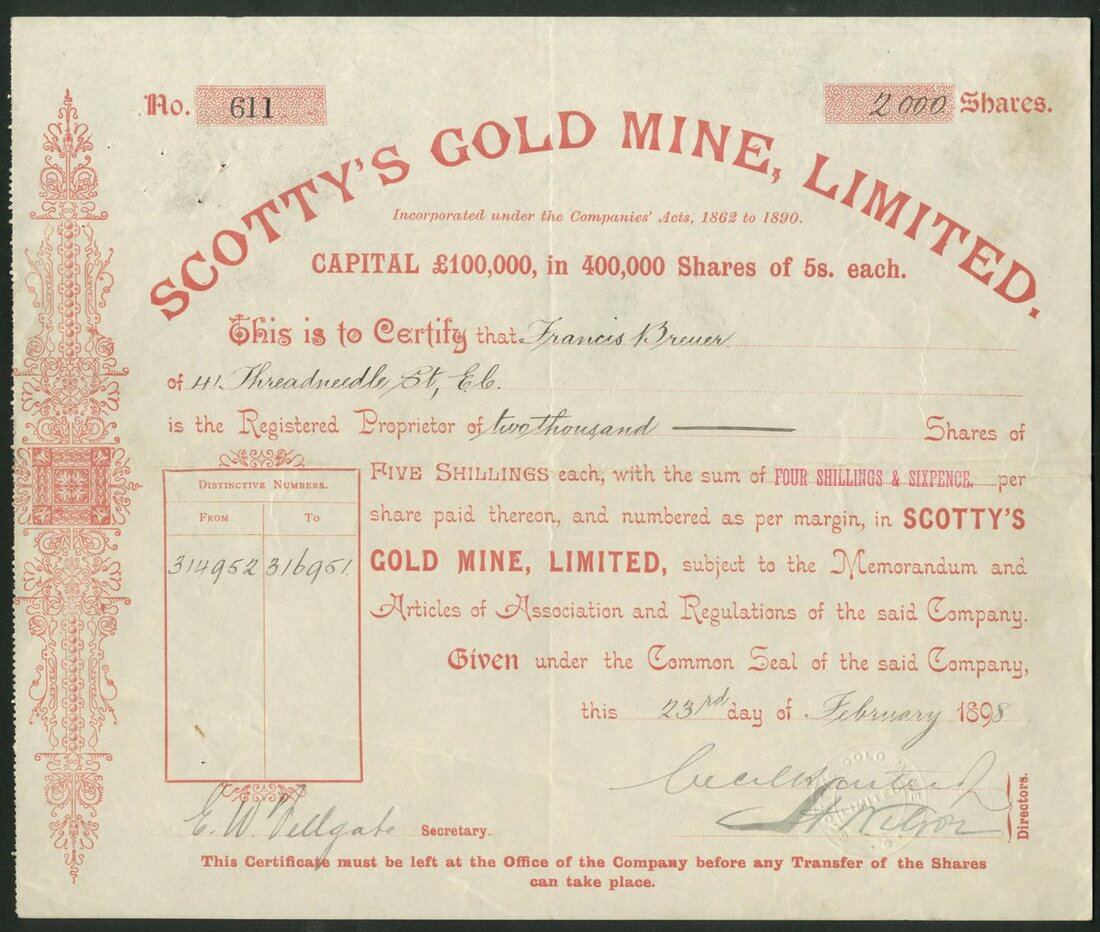 No. 611
2000 Shares.
SCOTTY'S GOLD MINE, LIMITED.
Incorporated under the Companies' Acts, 1862 to 1890.
CAPITAL £100,000, in 400,000 Shares of 5s. each.
This is to Certify that Francis Breuer
of 41 Threadneedle St, E.C.
is the Registered Proprietor of two thousand Shares of
FIVE SHILLINGS each, with the sum of FOUR SHILLINGS & SIXPENCE. per
share paid thereon, and numbered as per margin, in SCOTTY'S
GOLD MINE, LIMITED, subject to the Memorandum and
Articles of Association and Regulations of the said Company.
Given under the Common Seal of the said Company,
this 23rd day of February 1898
DISTINCTIVE NUMBERS.
FROM TO
314952 316951
E. W. Fellgate Secretary.
Cecil
Wilson
Directors.
GOLD
LIMITED
This Certificate must be left at the Office of the Company before any Transfer of the Shares
can take place.